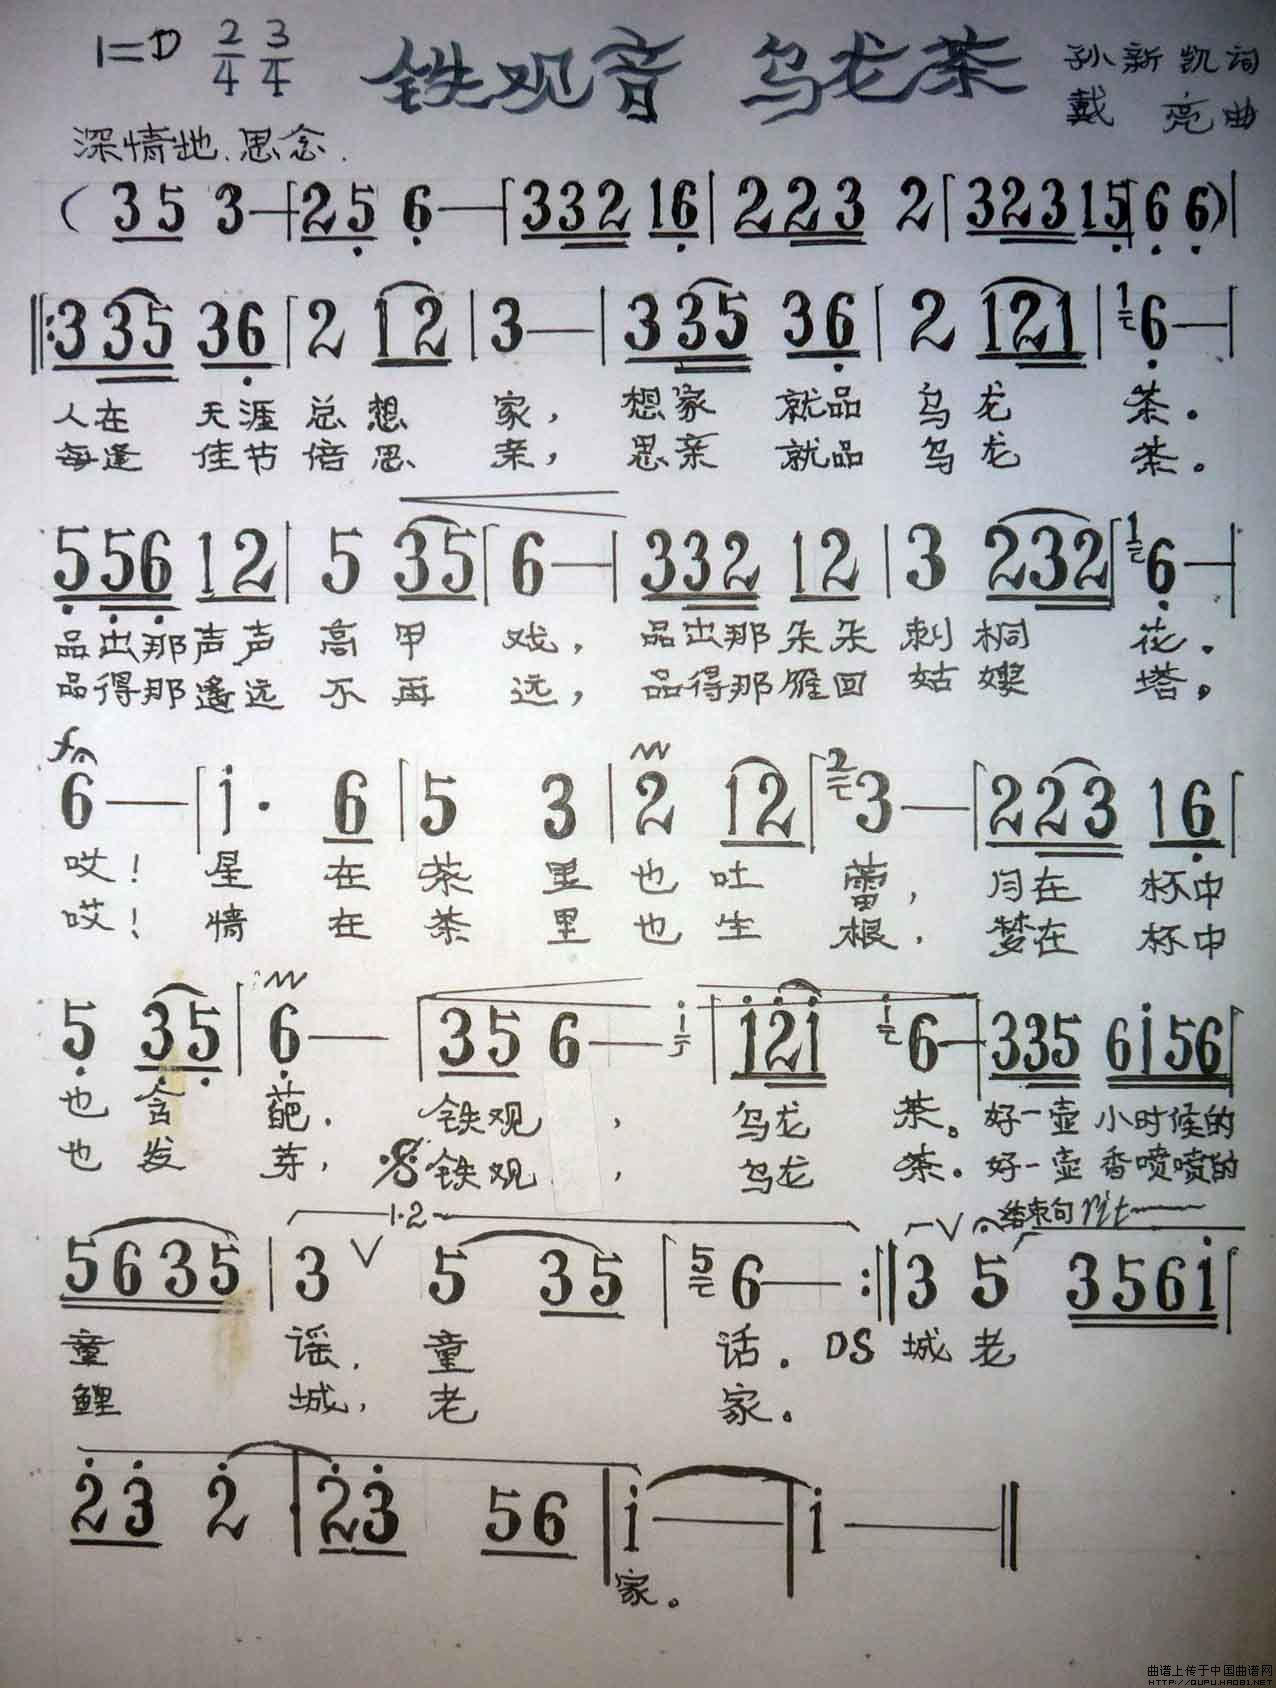 1=D 2/4 3/4 铁观音 乌龙茶 孙新凯词
戴 亮曲
深情地、思念.
(35 3—|25 6—|332 16|223 2|32315|6 6)|
‖:335 36|2 12|3—|335 36|2 121|1 6—|
人在 天涯 总想 家, 想家 就品 乌龙 茶。
每逢 佳节 倍思 亲, 思亲 就品 乌龙 茶。
556 12|5 35|6—|332 12|3 232|1 6—|
品出那声声 高甲 戏, 品出那朵朵 刺桐 花.
品得那遥远 不再 远, 品得那雁回 姑嫂 塔。
f
6—|i· 6|5 3|2 12|2 3—|223 16|
哎! 星 在 茶 里 也 吐 蕾, 月在 杯中
哎! 情 在 茶 里 也 生 根, 梦在 杯中
5 35|6—|35 6—i|i2i i 6—|335 6i56|
也 含 葩. 铁观 , 乌龙 茶。好一壶 小时候的
也 发 芽, 铁观 , 乌龙 茶. 好一壶 香喷喷的
1·2 结束句 rit
5635|3 V 5 35|5 6—:‖3 5 356i|
童 谣, 童 话. DS 城老
鲤 城, 老 家。
23 2|23 56|i—|i—‖
家。
曲谱上传于中国曲谱网
HTTP://QUPU.HAO81.NET